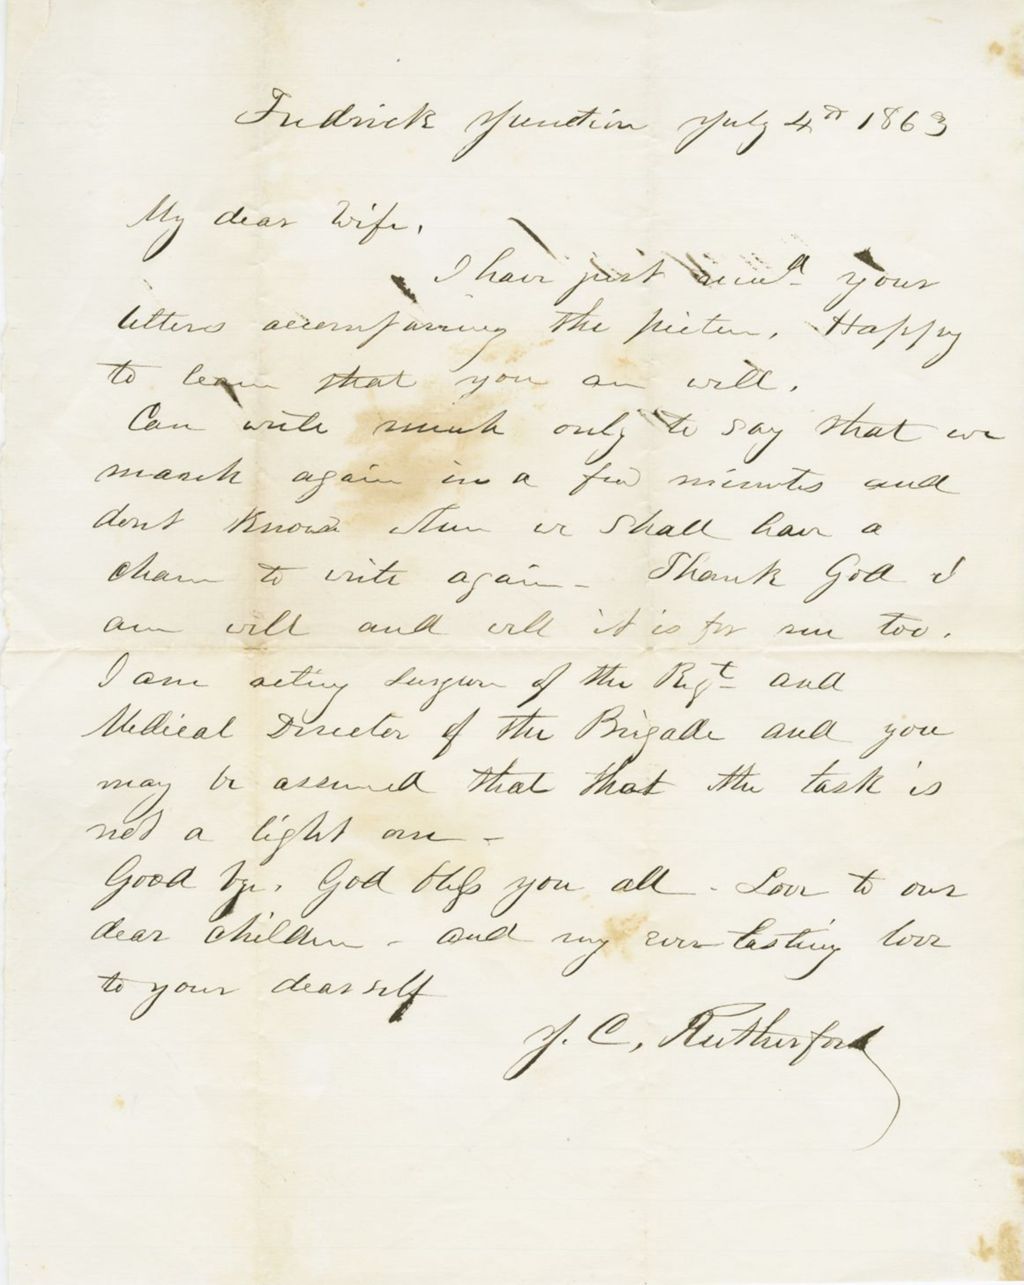 Fredrick Junction July 4th 1863
My dear Wife,
I have just recievd your
letters accompaning the picture. Happy
to learn that you are well.
Can write much only to say that we
march again in a few minutes and
dont Know when we shall have a
chance to write again - Thank God I
am well and well it is for me too.
I am acting Surgeon of the Regt and
Medical Director of the Brigade and you
may be assured that that the task is
not a light one -
Good bye. God bless you all - Love to our
dear children - and my ever lasting love
to your dear self
J. C. Rutherford